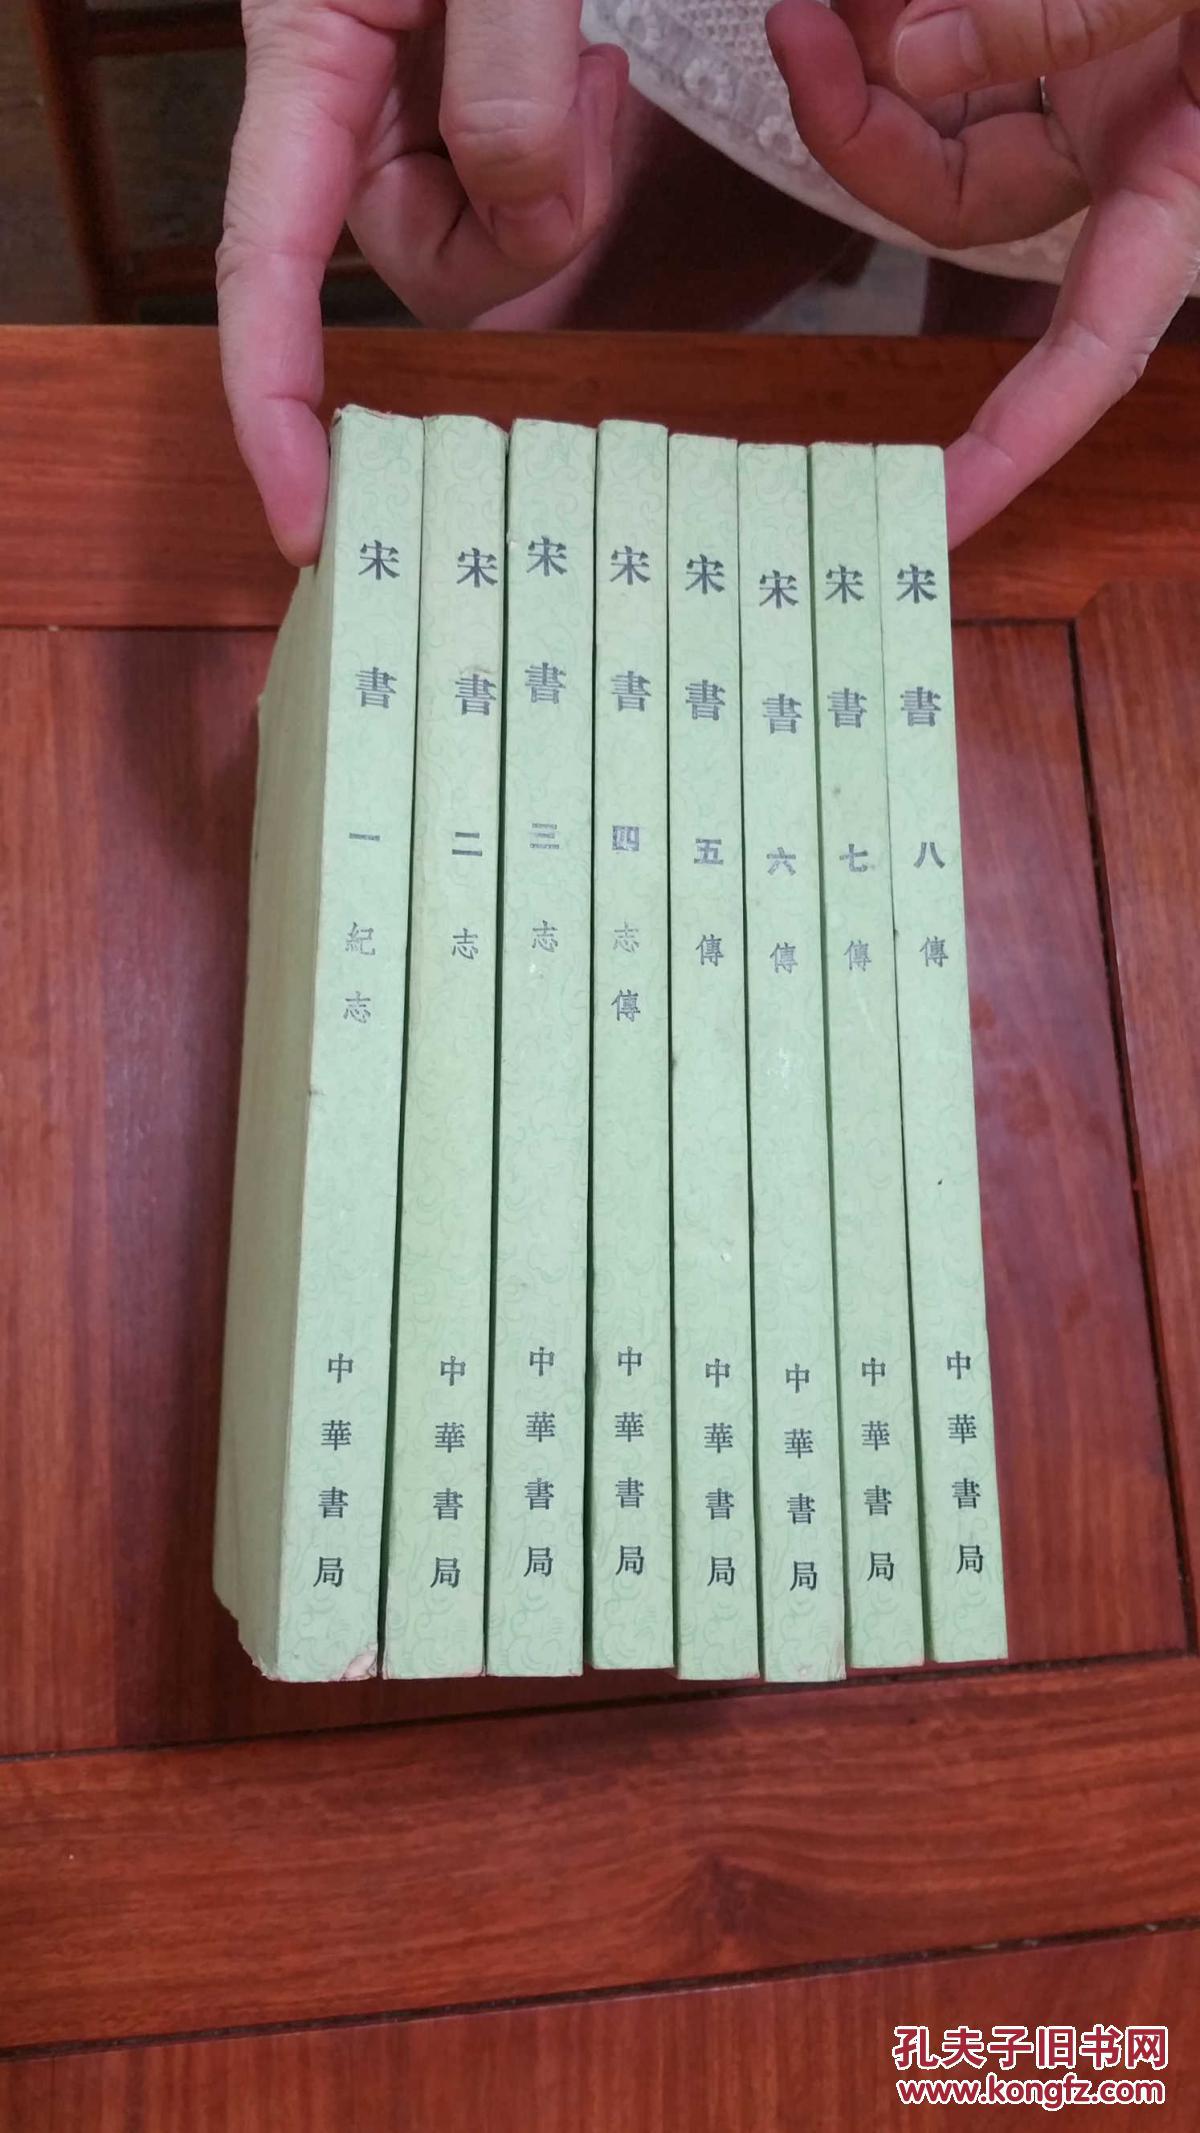 宋書 一 紀志 中華書局
宋書 二 志 中華書局
宋書 三 志 中華書局
宋書 四 志傳 中華書局
宋書 五 傳 中華書局
宋書 六 傳 中華書局
宋書 七 傳 中華書局
宋書 八 傳 中華書局
孔夫子旧书网
www.kongfz.com